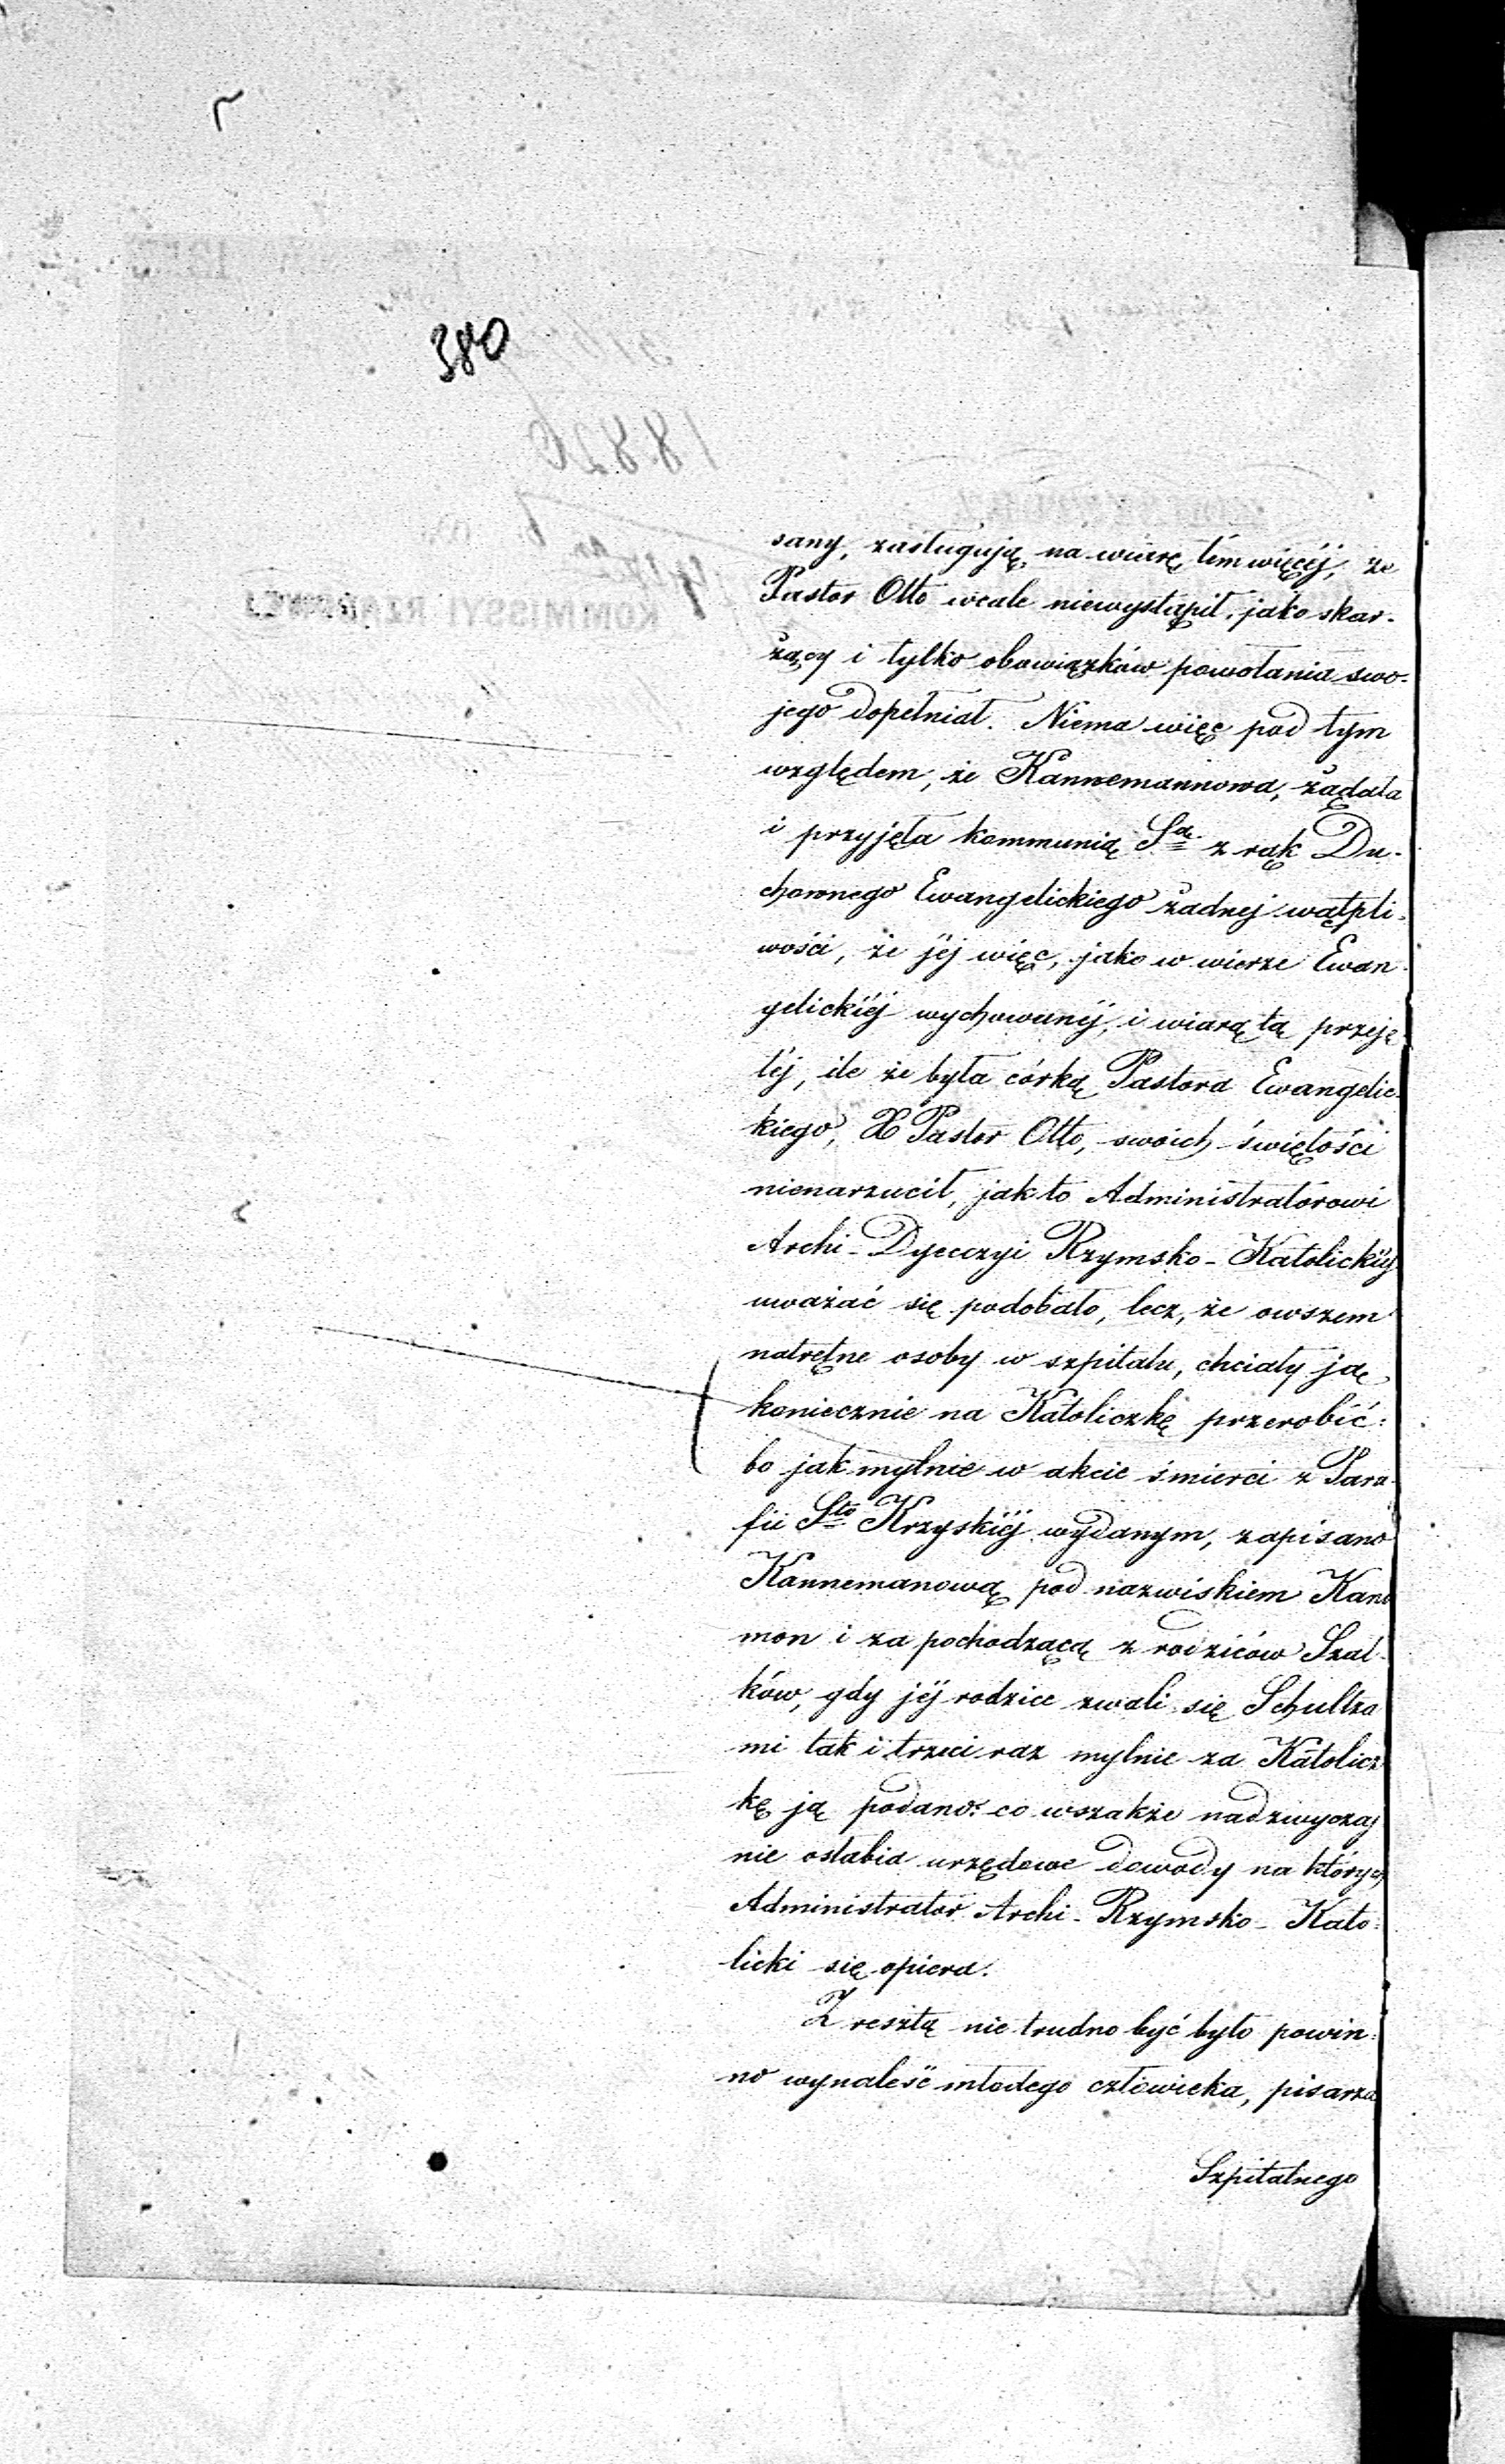 380
sany, zasługują, na wiarę tém więcéj, że
Pastor Otto wcale niewystąpił, jako skar-
żący i tylko obowiązków powołania swo-
jego dopełniał. Niema więc pod tym
względem, że Kannemannowa, żądała
i przyjęła kommunią Stą z rąk Du-
chownego Ewangelickiego żadnej wątpli-
wości, że jéj więc, jako w wierze Ewan-
gelickiéj wychowanéj, i wiarą tą przeję-
téj, ile że była córką Pastora Ewangelic-
kiego, X Pastor Otto, swoich świętości
nienarzucił, jak to Administratorowi
Archi-Dyecezyi Rzymsko-Katolickiéj
uważać się podobało, lecz, że owszem
natrętne osoby w szpitalu, chciały ją
koniecznie na Katoliczkę przerobić:
bo jak mylnie w akcie śmierci z Para-
fii Sto Krzyskiéj wydanym, zapisano
Kannemanową pod nazwiskiem Kano
mon i za pochodzącą z rodziców Szal-
ków, gdy jéj rodzice zwali się Schultza
mi tak i trzeci raz mylnie za Katolicz
kę ją podano: co wszakże nadzwyczaj
nie osłabia urzędowe dowody na których
Administrator Archi-Rzymsko-Kato-
licki się opiera.
Z resztą nie trudno być było powin-
no wynaleść młodego człowieka, pisarza
Szpitalnego